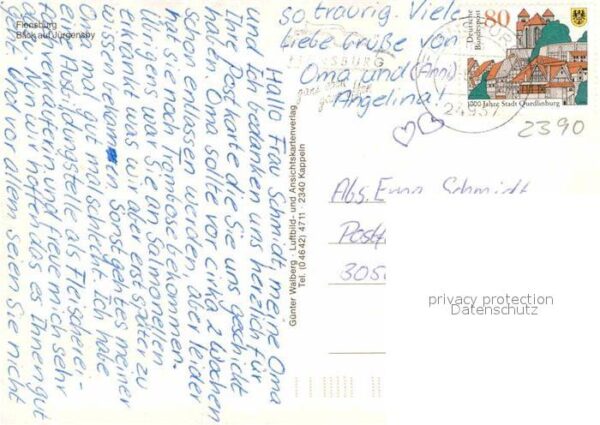 Flensburg
Blick auf Jürgensby
Hallo Frau Schmidt, meine Oma
und ich bedanken uns herzlich für
die Postkarte die Sie uns geschickt
haben. Oma sollte vor cirka 2 Wochen
schon entlassen werden, aber leider
hat sie noch Trombose bekommen.
Übrigens war Sie an Salmonellen
erkrankt was wir aber erst später zu
wissen bekommen. Sonst geht es meiner
Oma gut mal schlecht. Ich habe
eine Ausbildungstelle als Fleischerei-
verkäuferin und freue mich sehr
Wir hoffen das es Ihnen gut
geht. Und vor allem seien Sie nicht
so traurig. Viele
Liebe Grüße von
Oma und (Anni)
Angelina!
Günter Walberg · Luftbild- und Ansichtskartenverlag
Tel. (04642) 4711 · 2340 Kappeln
80
Deutsche Bundespost
1000 Jahre Stadt Quedlinburg
24937
2390
Abs. Schmidt
privacy protection
Datenschutz